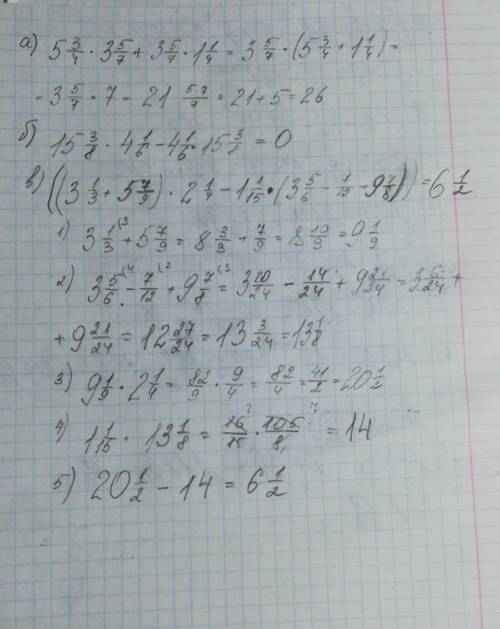 а) 5 3/4 · 3 5/7 + 3 5/7 · 1 1/4 = 3 5/7 · (5 3/4 + 1 1/4) =
= 3 5/7 · 7 = 21 5·7/7 = 21 + 5 = 26
б) 15 3/8 · 4 1/6 - 4 1/6 · 15 3/8 = 0
в) ((3 1/3 + 5 7/9) · 2 1/4 - 1 1/15 · (3 5/6 - + 9 7/8)) = 6 1/2
1) 3 1/3 (3 + 5 7/9 = 8 3/9 + 7/9 = 8 10/9 = 9 1/9
2) 3 5/6 (4 - 7/12 (2 + 9 7/8 (3 = 3 20/24 - 14/24 + 9 21/24 = 3 6/24 +
+ 9 21/24 = 12 27/24 = 13 3/24 = 13 1/8
3) 9 1/9 · 2 1/4 = 82/9 · 9/4 = 82/4 = 41/2 = 20 1/2
4) 1 1/15 · 13 1/8 = 16/15 2 · 105/8 7 = 14
5) 20 1/2 - 14 = 6 1/2